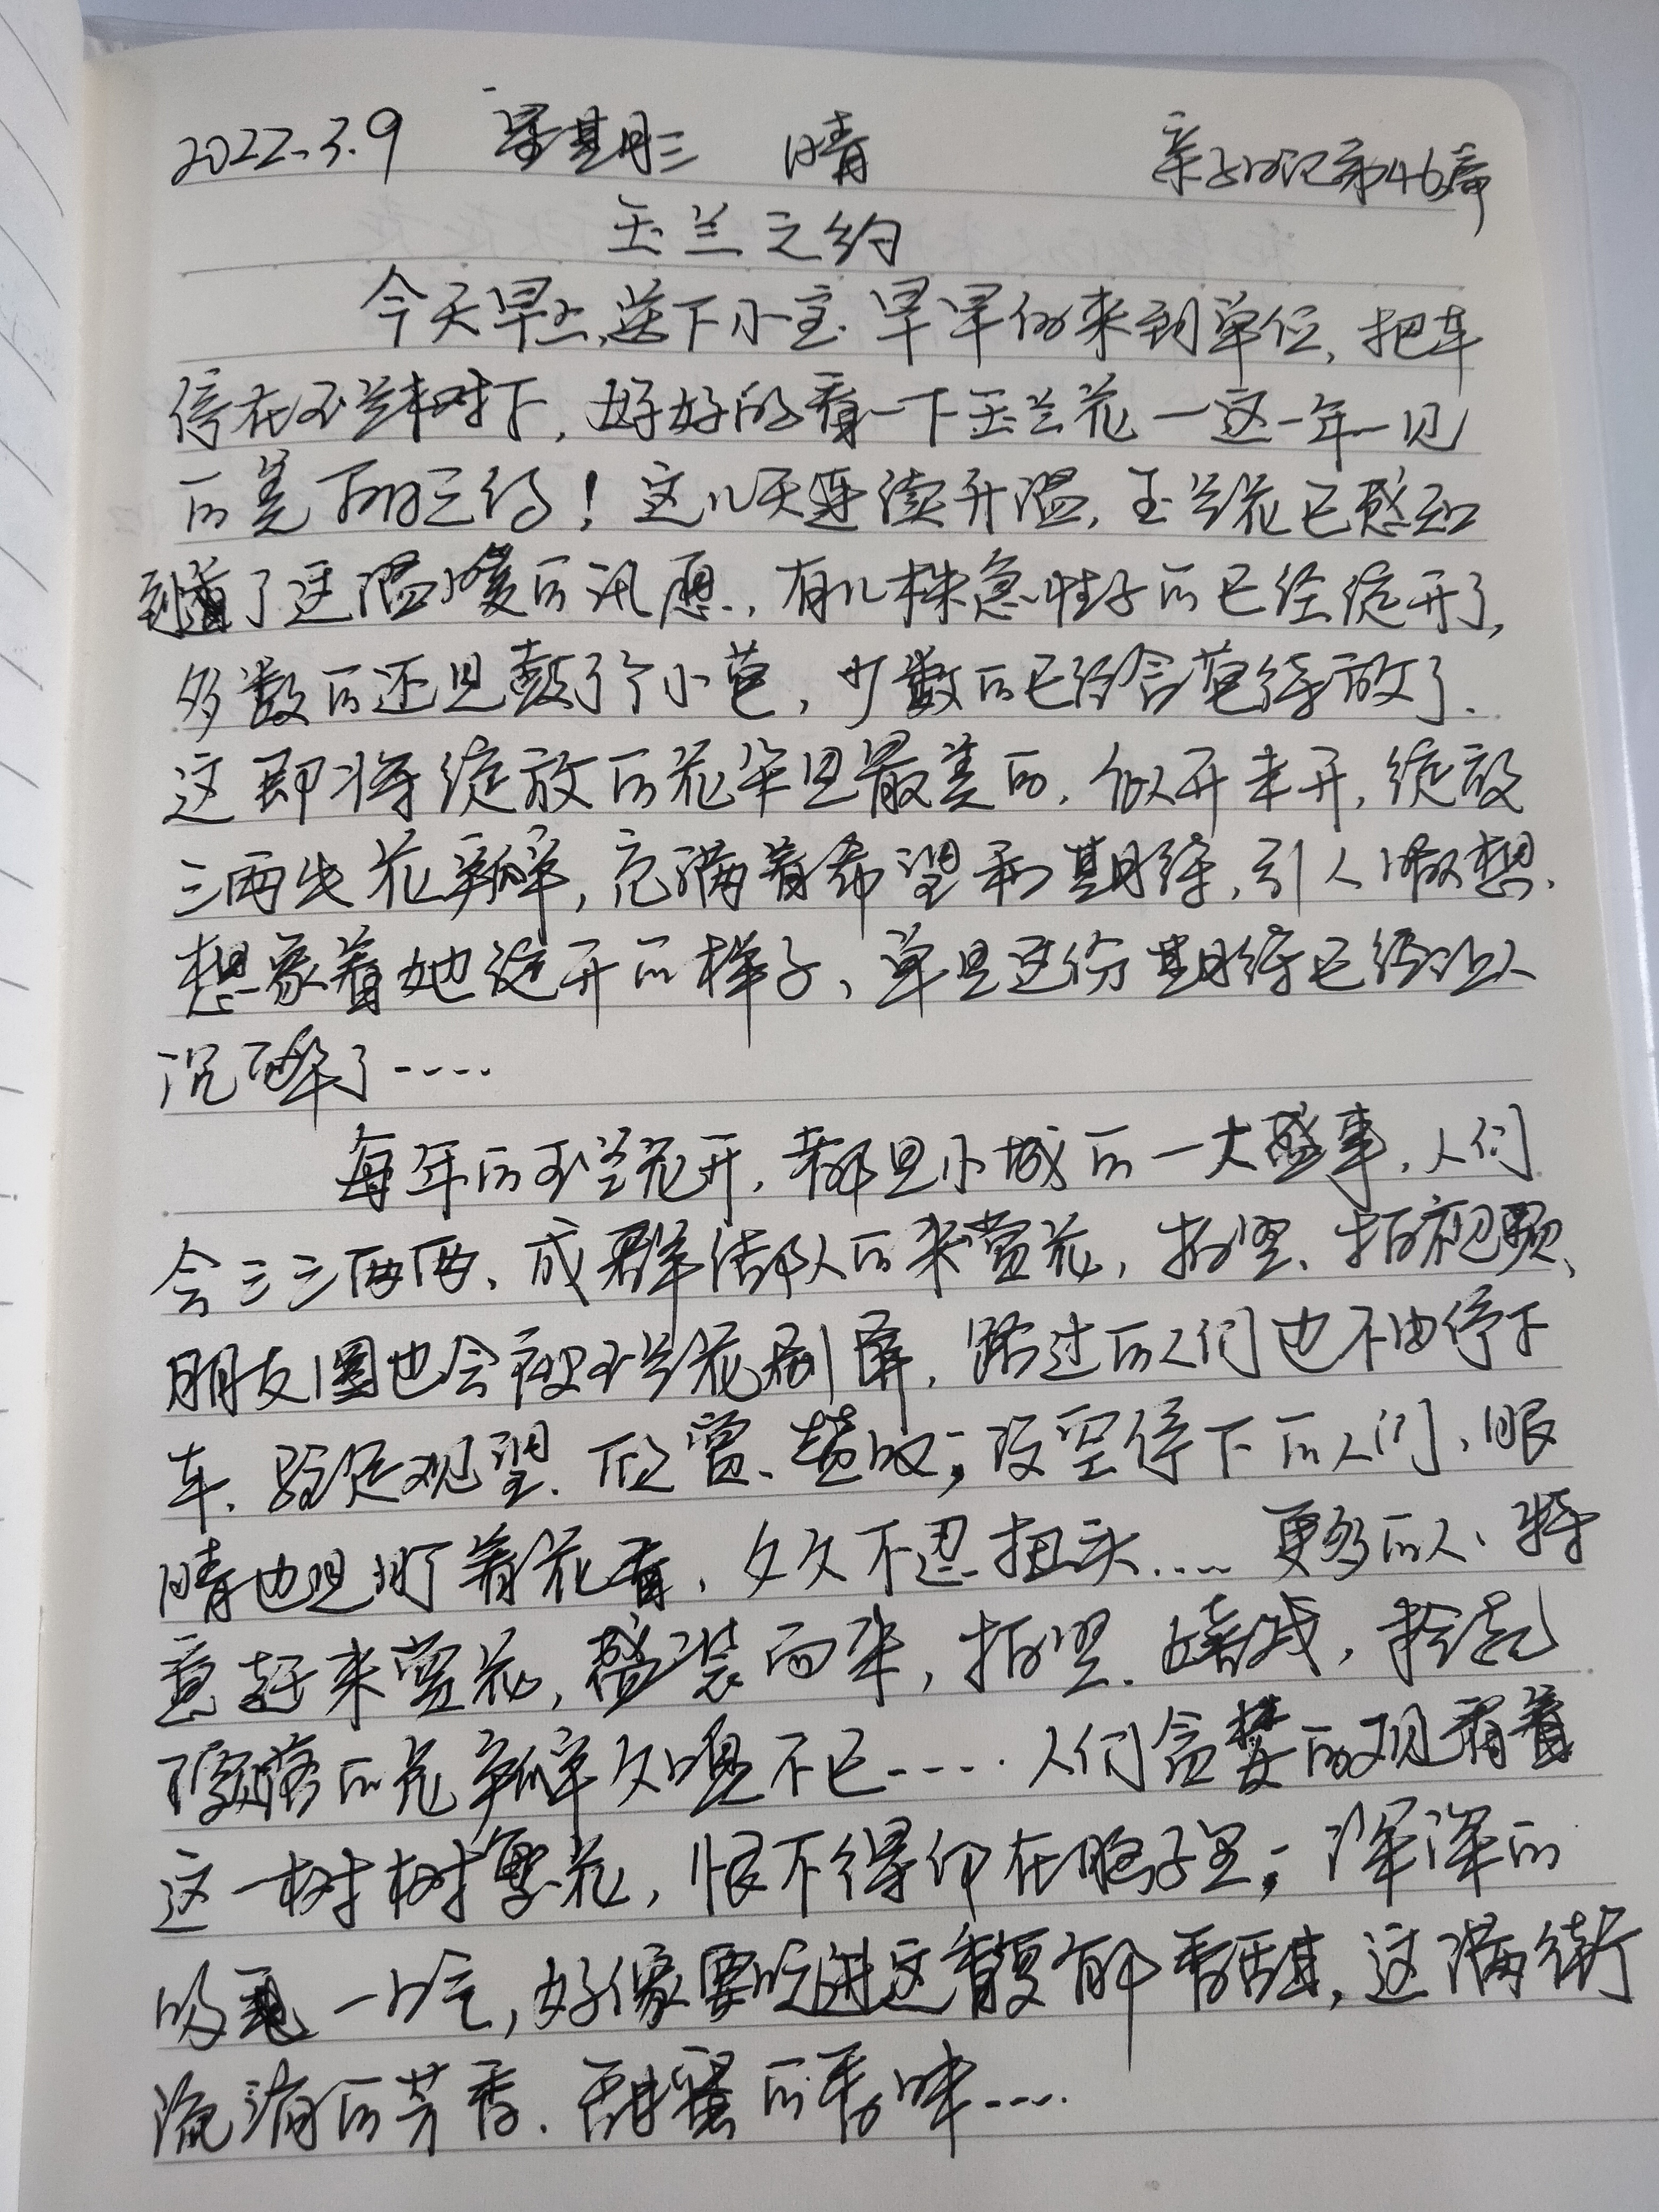 2022.3.9 星期三 晴 亲子日记第46篇
玉兰之约
今天早上，送下小宝，早早的来到单位，把车
停在玉兰树下，好好的看一下玉兰花一这一年一见
的美丽之约！这几天连续升温，玉兰花已感知
到了这温暖的讯息，有几株急性子的已经绽开了，
多数的还是鼓了个小苞，少数的已经含苞待放了．
这即将绽放的花朵是最美的，似开未开，绽放
三两片花瓣，充满着希望和期待，引人遐想，
想象着她绽开的样子，单是这份期待已经让人
沉醉了……
每年的玉兰花开，都是小城的一大盛事，人们
会三三两两、成群结队的来赏花，拍照、拍视频、
朋友圈也会被玉兰花刷屏，路过的人们也不由停下
车、驻足观望、欣赏、赞叹；没空停下的人们，眼
睛也是盯着花看，久久不忍扭头……更多的人、特
意赶来赏花，盛装而来，拍照、嬉戏，拾起
飘落的花瓣久嗅不已……人们贪婪的观看着
这一树树繁花，恨不得印在脑子里；深深的
吸一口气，好像要吃进这馥郁香甜，这满街
流淌的芳香、甜蜜的香味……